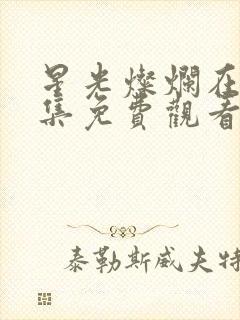 星光燦爛在
集免費觀看
泰勒斯威夫特